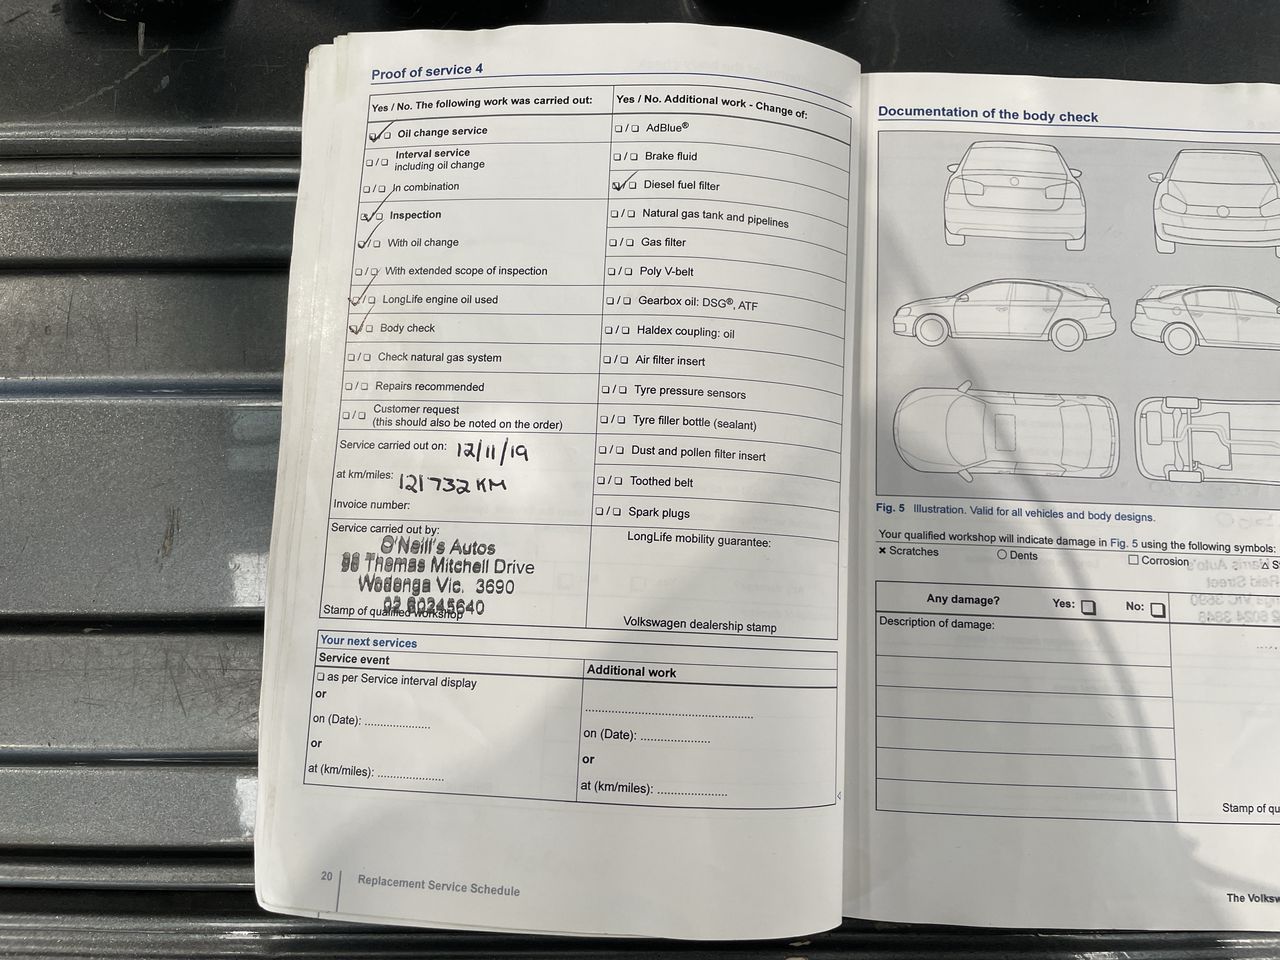 Proof of service 4
Yes / No. The following work was carried out:
☑/☐ Oil change service
☐/☐ Interval service
including oil change
☐/☐ In combination
☑/☐ Inspection
☑/☐ With oil change
☐/☐ With extended scope of inspection
☑/☐ LongLife engine oil used
☑/☐ Body check
☐/☐ Check natural gas system
☐/☐ Repairs recommended
☐/☐ Customer request
(this should also be noted on the order)
Service carried out on: 12/11/19
at km/miles: 121732 KM
Invoice number:
Service carried out by:
O'Neill's Autos
Thomas Mitchell Drive
Wodonga Vic. 3690
02 60245640
Stamp of qualified workshop
Yes / No. Additional work - Change of:
☐/☐ AdBlue®
☐/☐ Brake fluid
☑/☐ Diesel fuel filter
☐/☐ Natural gas tank and pipelines
☐/☐ Gas filter
☐/☐ Poly V-belt
☐/☐ Gearbox oil: DSG®, ATF
☐/☐ Haldex coupling: oil
☐/☐ Air filter insert
☐/☐ Tyre pressure sensors
☐/☐ Tyre filler bottle (sealant)
☐/☐ Dust and pollen filter insert
☐/☐ Toothed belt
☐/☐ Spark plugs
LongLife mobility guarantee:
Volkswagen dealership stamp
Your next services
Service event
☐ as per Service interval display
or
on (Date): ....................
or
at (km/miles): ....................
Additional work
..................................................
on (Date): ....................
or
at (km/miles): ....................
20
Replacement Service Schedule
Documentation of the body check
Fig. 5 Illustration. Valid for all vehicles and body designs.
Your qualified workshop will indicate damage in Fig. 5 using the following symbols:
× Scratches ○ Dents □ Corrosion △
Any damage? Yes: ☐ No: ☐
Description of damage:
Stamp of
The